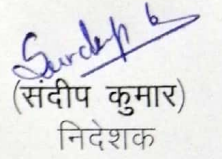 Sandeep k
(संदीप कुमार)
निदेशक